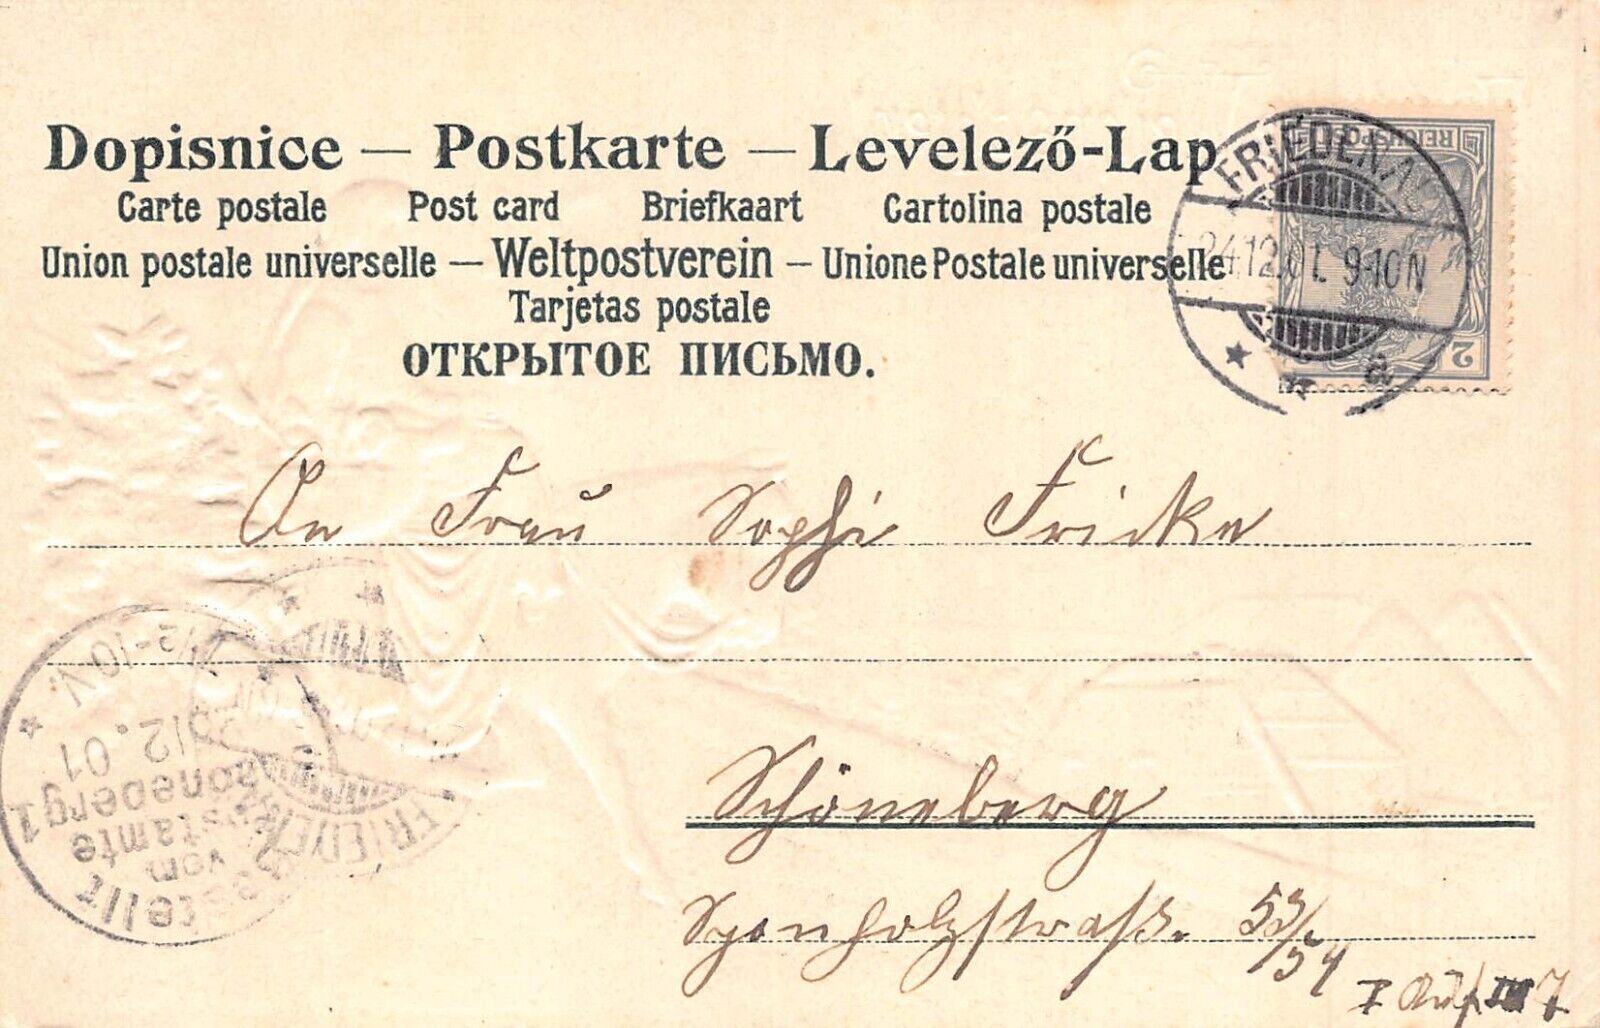 Dopisnice — Postkarte — Levelező-Lap
Carte postale Post card Briefkaart Cartolina postale
Union postale universelle — Weltpostverein — Unione Postale universelle
Tarjetas postale
ОТКРЫТОЕ ПИСЬМО.
REICHSPOST
2
FRIEDENAU
24.12.01. 9-10N
a
An Frau Sophi Fricke
Schöneberg
Sponholzstraß. 53/54
I Auf III 7
Bestellt
vom
Postamte
Schöneberg 1
12.01
1/2-10V.
FRIEDENAU